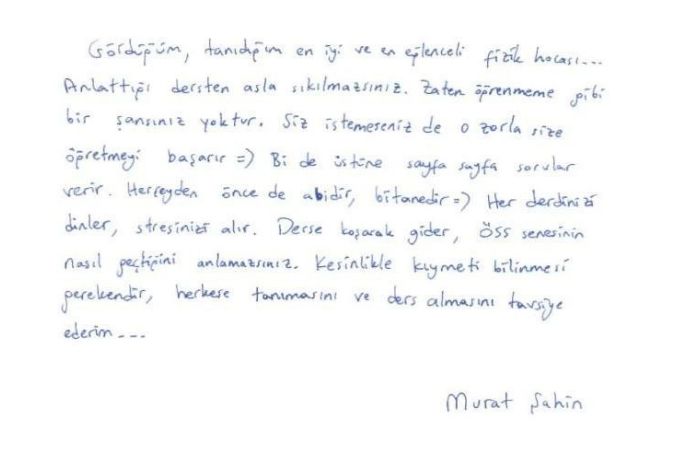 Gördüğüm, tanıdığım en iyi ve en eğlenceli fizik hocası...
Anlattığı dersten asla sıkılmazsınız. Zaten öğrenmeme gibi
bir şansınız yoktur. Siz istemeseniz de o zorla size
öğretmeyi başarır =) Bi de üstüne sayfa sayfa sorular
verir. Herşeyden önce de abidir, bitanedir =) Her derdinizi
dinler, stresinizi alır. Derse koşarak gider, ÖSS senesinin
nasıl geçtiğini anlamazsınız. Kesinlikle kıymeti bilinmesi
gerekendir, herkese tanımasını ve ders almasını tavsiye
ederim...
Murat Şahin